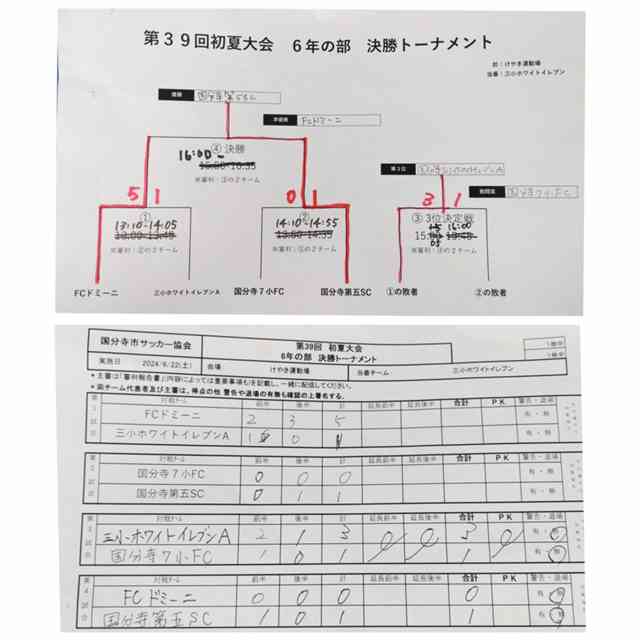 第39回初夏大会 6年の部 決勝トーナメント
於：けやき運動場
当番：三小ホワイトイレブン
優勝 国分寺第五SC
準優勝 FCドミーニ
④ 決勝
16:00-
15:00-16:35
※審判：③の2チーム
第3位
敢闘賞 国分寺7小FC
5 1
0 1
3 1
①
13:10-14:05
13:00-13:45
※審判：②の2チーム
②
14:10-14:55
※審判：①の2チーム
③ 3位決定戦
FCドミーニ
三小ホワイトイレブンA
国分寺7小FC
国分寺第五SC
①の敗者
②の敗者
国分寺市サッカー協会
第39回 初夏大会
6年の部 決勝トーナメント
実施日 2024/6/22(土) 会場 けやき運動場 当番チーム 三小ホワイトイレブン
＊主審は「審判報告書」内容によっては重要事項も)を記載し、一緒に配信してください。
＊両チーム代表者及び主審は、得点の他 警告や退場の有無も確認の上署名する。
第1試合 対戦チーム 前半 後半 計 延長前半 延長後半 合計 PK 警告・退場
FCドミーニ 2 3 5 有・無
三小ホワイトイレブンA 1 0 1 有・無
第2試合 対戦チーム 前半 後半 計 延長前半 延長後半 合計 PK 警告・退場
国分寺7小FC 0 0 0 有・無
国分寺第五SC 0 1 1 有・無
第3試合 対戦チーム 前半 後半 計 延長前半 延長後半 合計 PK 警告・退場
三小ホワイトイレブンA 2 1 3 3 有・無
国分寺7小FC 1 0 1 1 有・無
第4試合 対戦チーム 前半 後半 計 延長前半 延長後半 合計 PK 警告・退場
FCドミーニ 0 0 0 0 有・無
国分寺第五SC 1 0 1 1 有・無